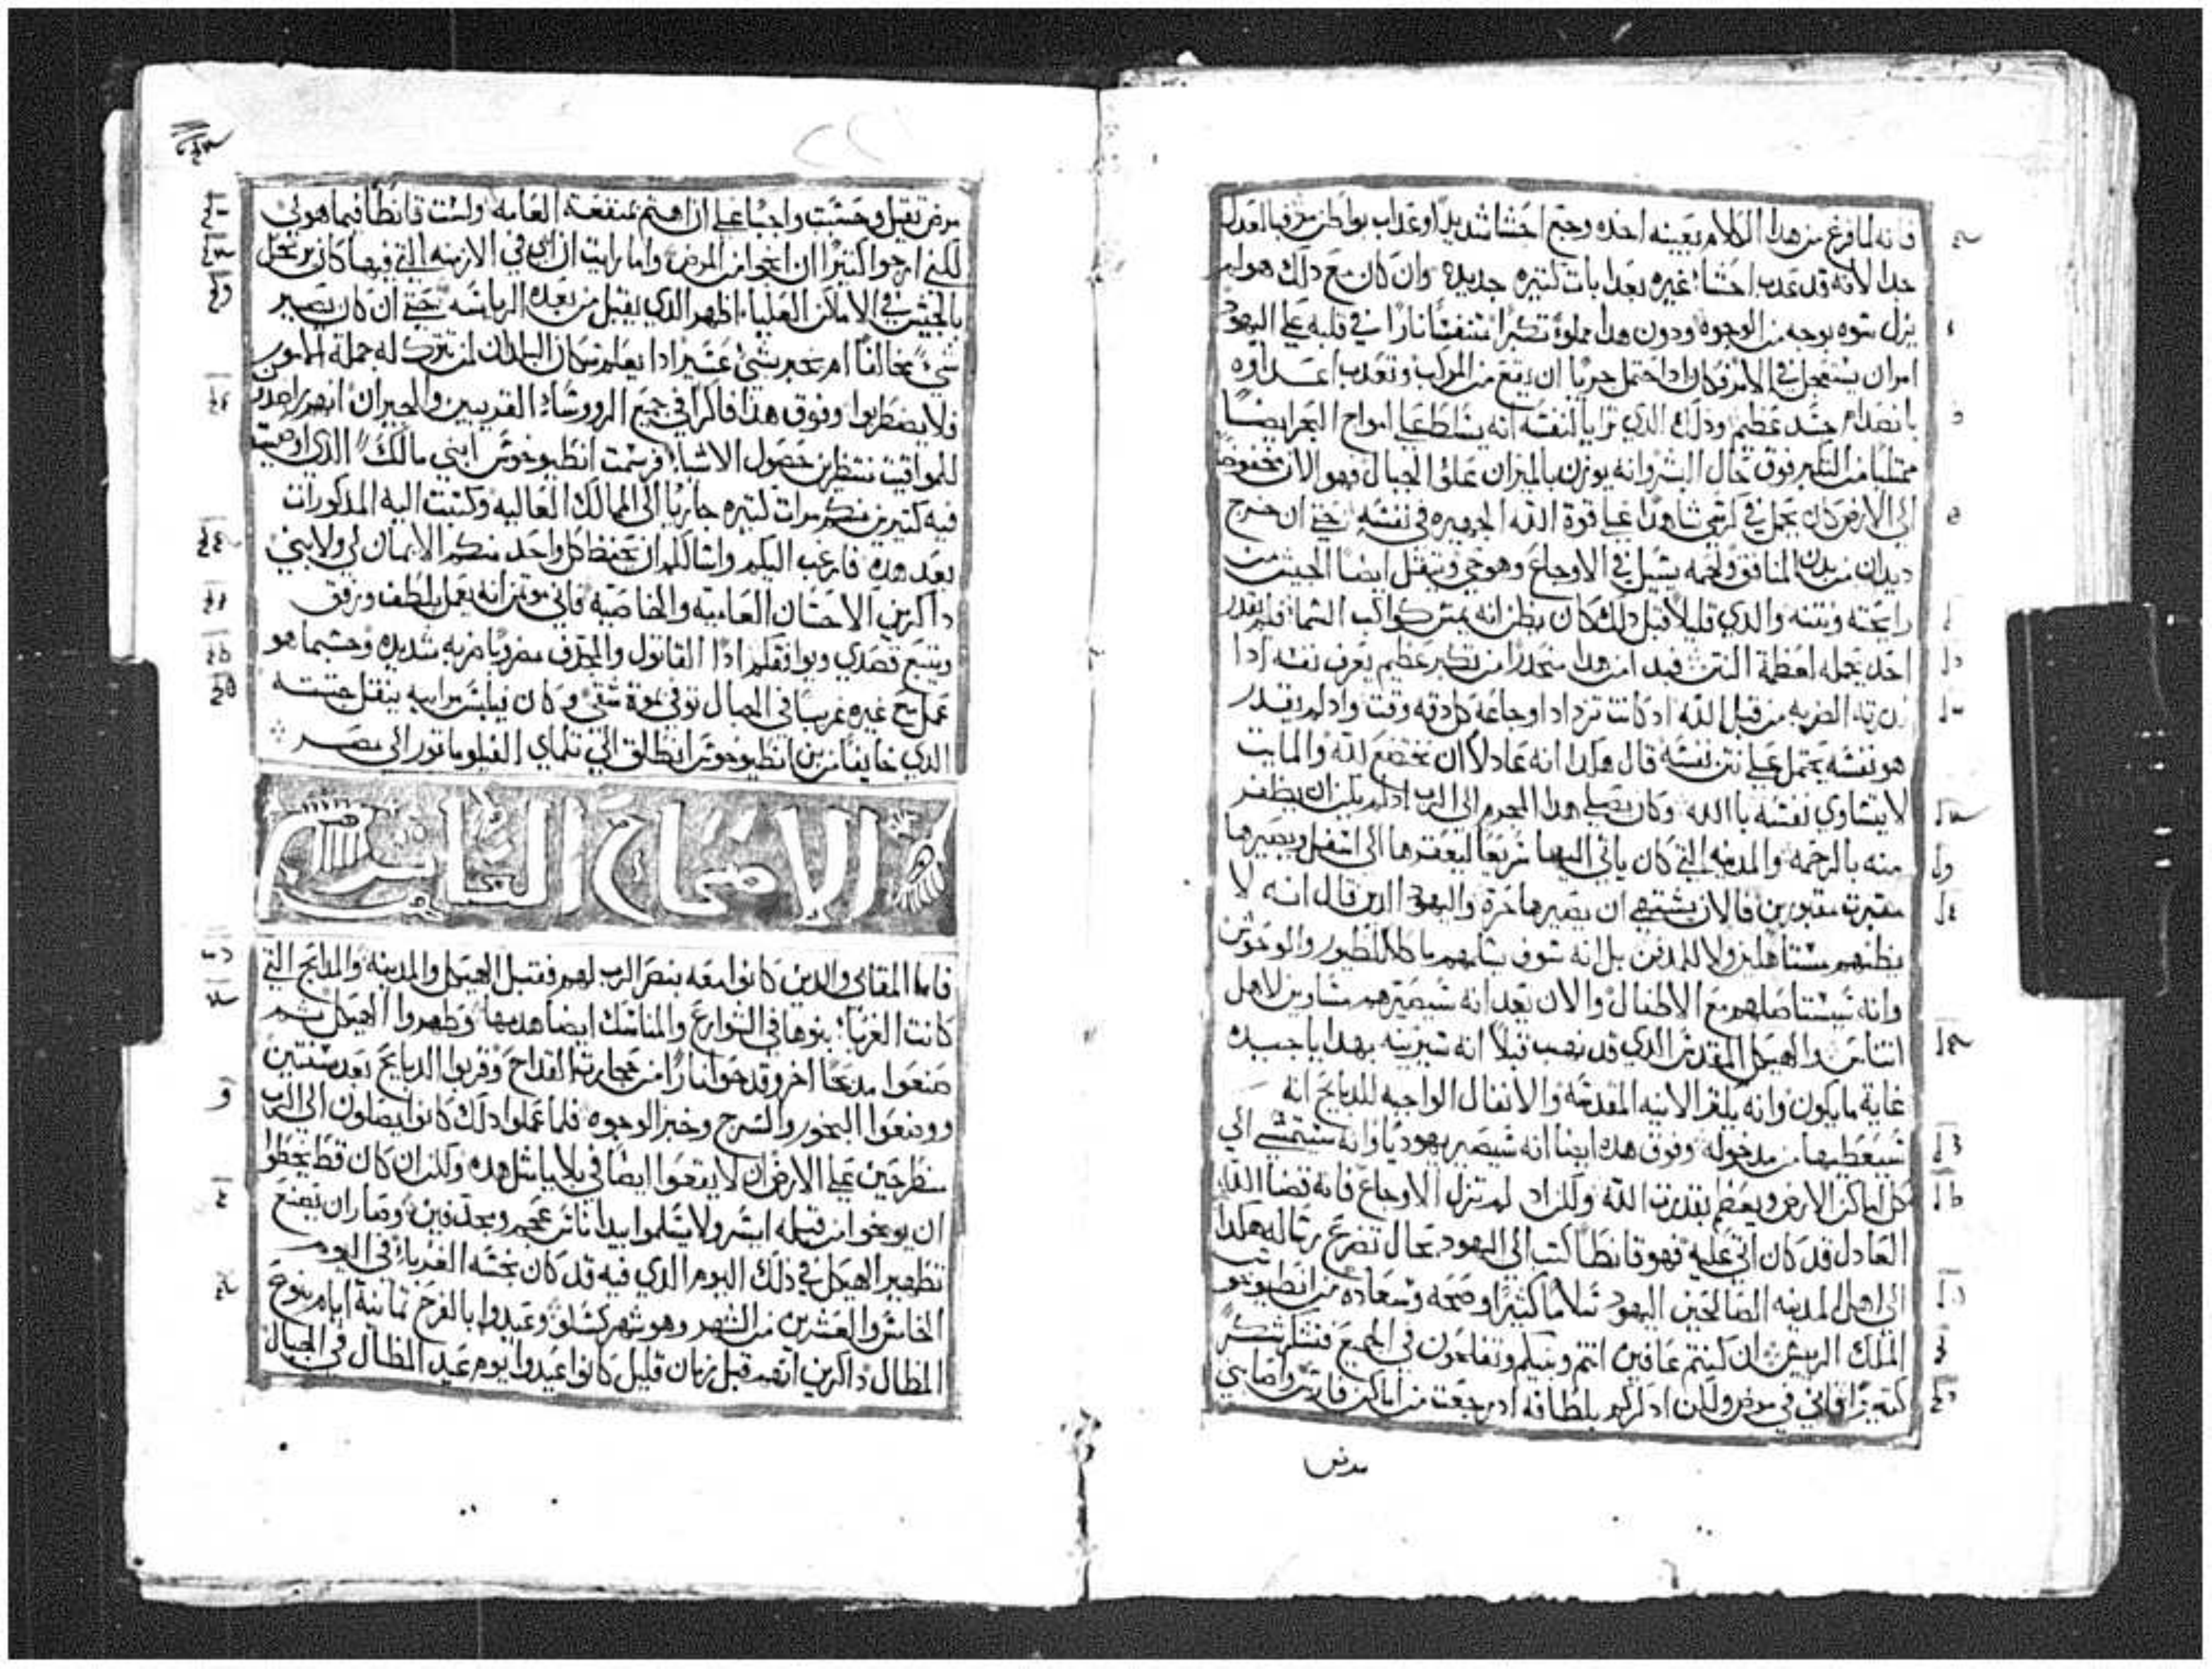 فانه لما فرغ من هذا الكلام بعينه اخذه وجع احشا شديدا وعذاب بواطن مر فبالعدل
جدا لانه قد عذب احشا غيره بعدابات كتيره جديده وان كان مع ذلك هو لم
يزل بتوه بوجه من الوجوه ودون هدا مملوة تكبرا متنفسا نارا في قلبه علي اليهود
امر ان يستعجل في الامر فكان اذ احتمل جريا ان يقع من المركب وتعذب اعضاوه
بانصدام جسد عظيم وذلك الذي ترايا لنفسه انه يتسلط علي امواج البحر ايضا
ممتليا من التكبر فوق حال البشر وانه يوزن بالميزان علو الجبال فهو الان مخفوضا
الي الارض كان يحمل في كرسي شاهدا علي قوة الله الجهيره في نفسه حتي ان خرج
ديدان من بدن المنافق ولحمه يسيل في الاوجاع وهو حي ويتقل ايضا الجيش من
رايحته ونتنه والذي قليلا قبل ذلك كان يظن انه يمس كواكب السما فلم يقدر
احد يحمله لعظمة النتن فبدا من هدا منحدرا من تكبر عظيم يعرف نفسه اذا
زرته الضربه من قبل الله اد كانت تزداد اوجاعه كل دقه وقت واد لم يقدر
هو نفسه يحتمل علي نتن نفسه قال هكدا انه عادلا ان يخضع لله والمايت
لا يتساوي نفسه بالله وكان يصلي هدا المجرم الي الرب اد لم يكن ان يظفر
منه بالرحمه والمدينه التي كان ياتي اليها سريعا ليعقرها الي اسفل ويصيرها
مقبرت مقبورين فالان يشتهي ان يصيرها حرة واليهود الدين قال انه لا
يظنهم مستاهلين ولا للدفن بل انه سوف يسلمهم ماكلا للطيور والوحوش
وانه سيستاصلهم مع الاطفال والان يعد انه سيصيرهم متساوين لاهل
اتناس والهيكل المقدس الذي قد نهب قبلا انه سيزينه بهدايا جيده
غاية ما يكون وانه يكثر الانيه المقدسه والانفال الواجبه للدبايح انه
سيعطيها من مدخوله وفوق هده ايضا انه سيصير يهوديا وانه سيتمشي الي
كل اماكن الارض ويعظم بقدرت الله ولكن اد لم تزل الاوجاع فانه قضا الله
العادل قد كان اتي عليه فهو قانطا كتب الي اليهود بحال تضرع رساله هكدا
الي اهل المدينه الصالحين اليهود سلاما كثيرا وصحه وسعاده من انطيوخو
الملك الرييس ان كنتم عافين انتم وبنيكم وتفلحون في الجميع فنشكر شكر
كتيرا فاني في مرض ولكن ادكركم بلطافه اد رجعت من اماكن فارس واصابني
مرض
مرض تقيل وحسبت واجبا علي ان اهتم بمنفعة العامه ولست قانطا فيما هو لي
لكني ارجوا كتيرا ان انجوا من المرض واما رايت ان ابي في الازمنه التي فيها كان يرتحل
بالجيش في الاماكن العليا اظهر الذي يقبل من بعده الرياسه حتي ان كان يصير
شي مخالفا ام يخبر بشي عسيرا دا يعلم سكان البلدان لمن تترك له جملة الامور
فلا يضطربوا وفوق هذا فاكرا في جميع الرووساء القريبين والجيران انهم راصدين
للمواقيت منتظرين حصول الاشياء فرسمت انطيوخوس ابني مالكا الذي اوصيت
فيه كتيرين منكم مرات كتيره جاريا الي الممالك العاليه وكتبت اليه المدكورات
بعد هده فارغب اليكم واسالكم ان يحفظ كل واحد منكم الايمان لي ولابني
داكرين الاحسان العاميه والخاصيه فاني موتمن انه يعمل بلطف ورفق
ويتبع قصدي ويوافقكم ادا القاتول والمجدف مضروبا ضربه شديده وحسبما هو
عمل مع غيره غريبا في الجبال توفي بموة شقي وكان فيلبس مرابيه ينقل جتته
الدي خايفا من ابن انطيوخوس انطلق الي تلماي الفيلوماتور الي مصر
الاصحاح العاشر
فاما المقابي والدين كانوا معه بنصر الرب لهم فقبل الهيكل والمدينه والمدابح التي
كانت الغربا بنوها في الشوارع والمناسك ايضا هدمها وطهروا الهيكل بهم
صنعوا مدبحا اخر وقدحوا نارا من حجارة القداح وقربوا الدبايح بعد سنتين
ووضعوا البخور والسرج وخبز الوجوه فلما عملوا دلك كانوا يصلون الي الرب
منطرحين علي الارض ان لا يقعوا ايضا في بلايا مثل هده ولكن ان كان قط يخطوا
ان يوبخوا من قبله ايسر ولا يسلموا بيد اناس عجم ومجدفين وصار ان يصنع
تطهير الهيكل في ذلك اليوم الدي فيه قد كان نجسه الغرباء في اليوم
الخامس والعشرين من الشهر وهو شهر كسلو وعيدوا بالفرح تمانية ايام بنوع
المظال داكرين انهم قبل زمان قليل كانوا عيدوا يوم عيد المظال في الجبال